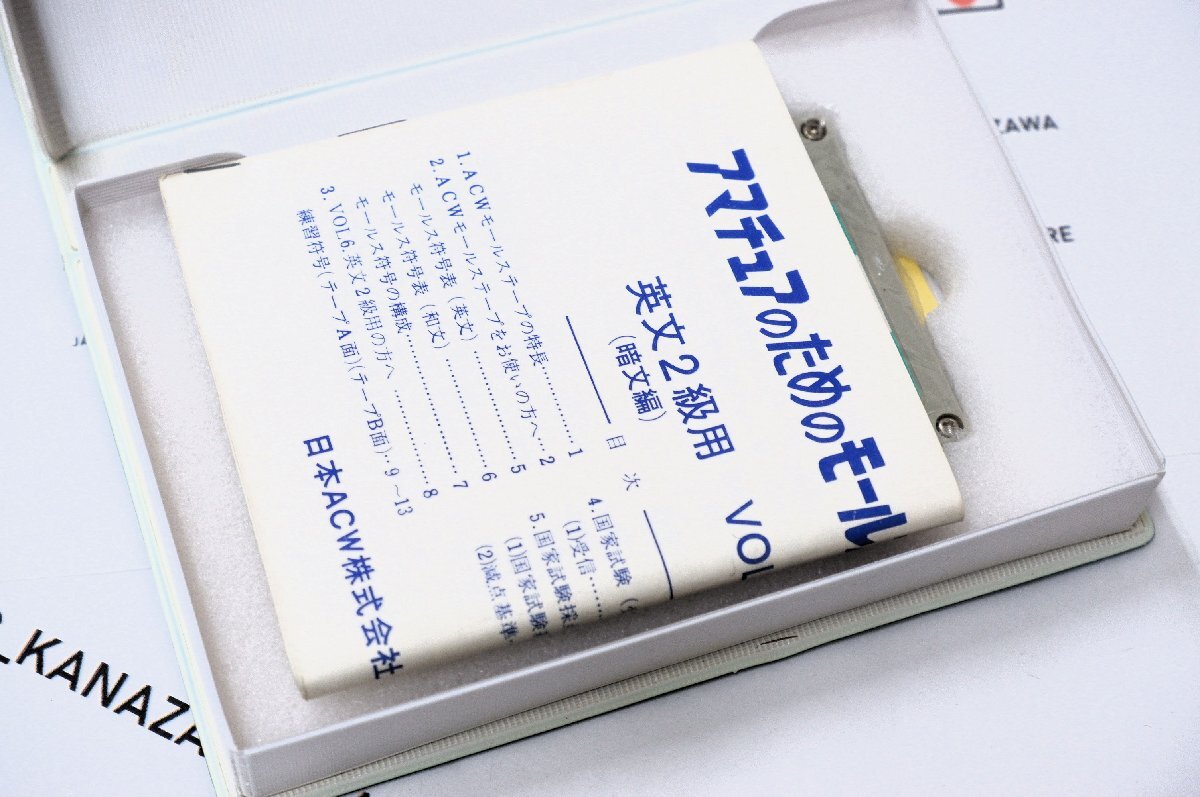 アマチュアのためのモール
英文2級用
(暗文編)
VOL
目 次
1. ACWモールステープの特長…………1
2. ACWモールステープをお使いの方へ…2
モールス符号表(英文)…………5
モールス符号表(和文)…………6
モールス符号の構成…………7
3. VOL.6.英文2級用の方へ…………8
練習符号(テープA面)(テープB面)‥9~13
4. 国家試験
(1)受信……
5. 国家試験採
(1)国家試験
(2)減点基準
日本ACW株式会社
KANAZA
ZAWA
RE
JA